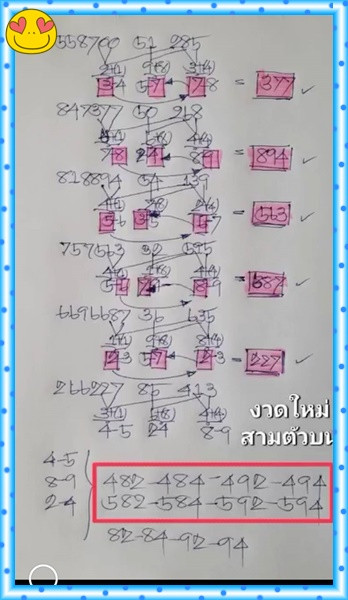 558700 51 285
2+(1) 9+(8) 3+(4)
34 57 78 = 377
847377 50 268
78 24 89 = 894
818894 54 139
4+(1) 4+(4)
56 35 57 = 563
757563 32 595
4+(1) 4+(4)
= 687
6696687 36 635
1+(1) 9+(8) 8+(4)
2-3 57 2-3 = 227
266227 85 413
3+(1) 4+(4)
4-5 24 8-9
งวดใหม่
สามตัวบน
4-5
8-9
2-4
482-484-492-494
582-584-592-594
82-84-92-94